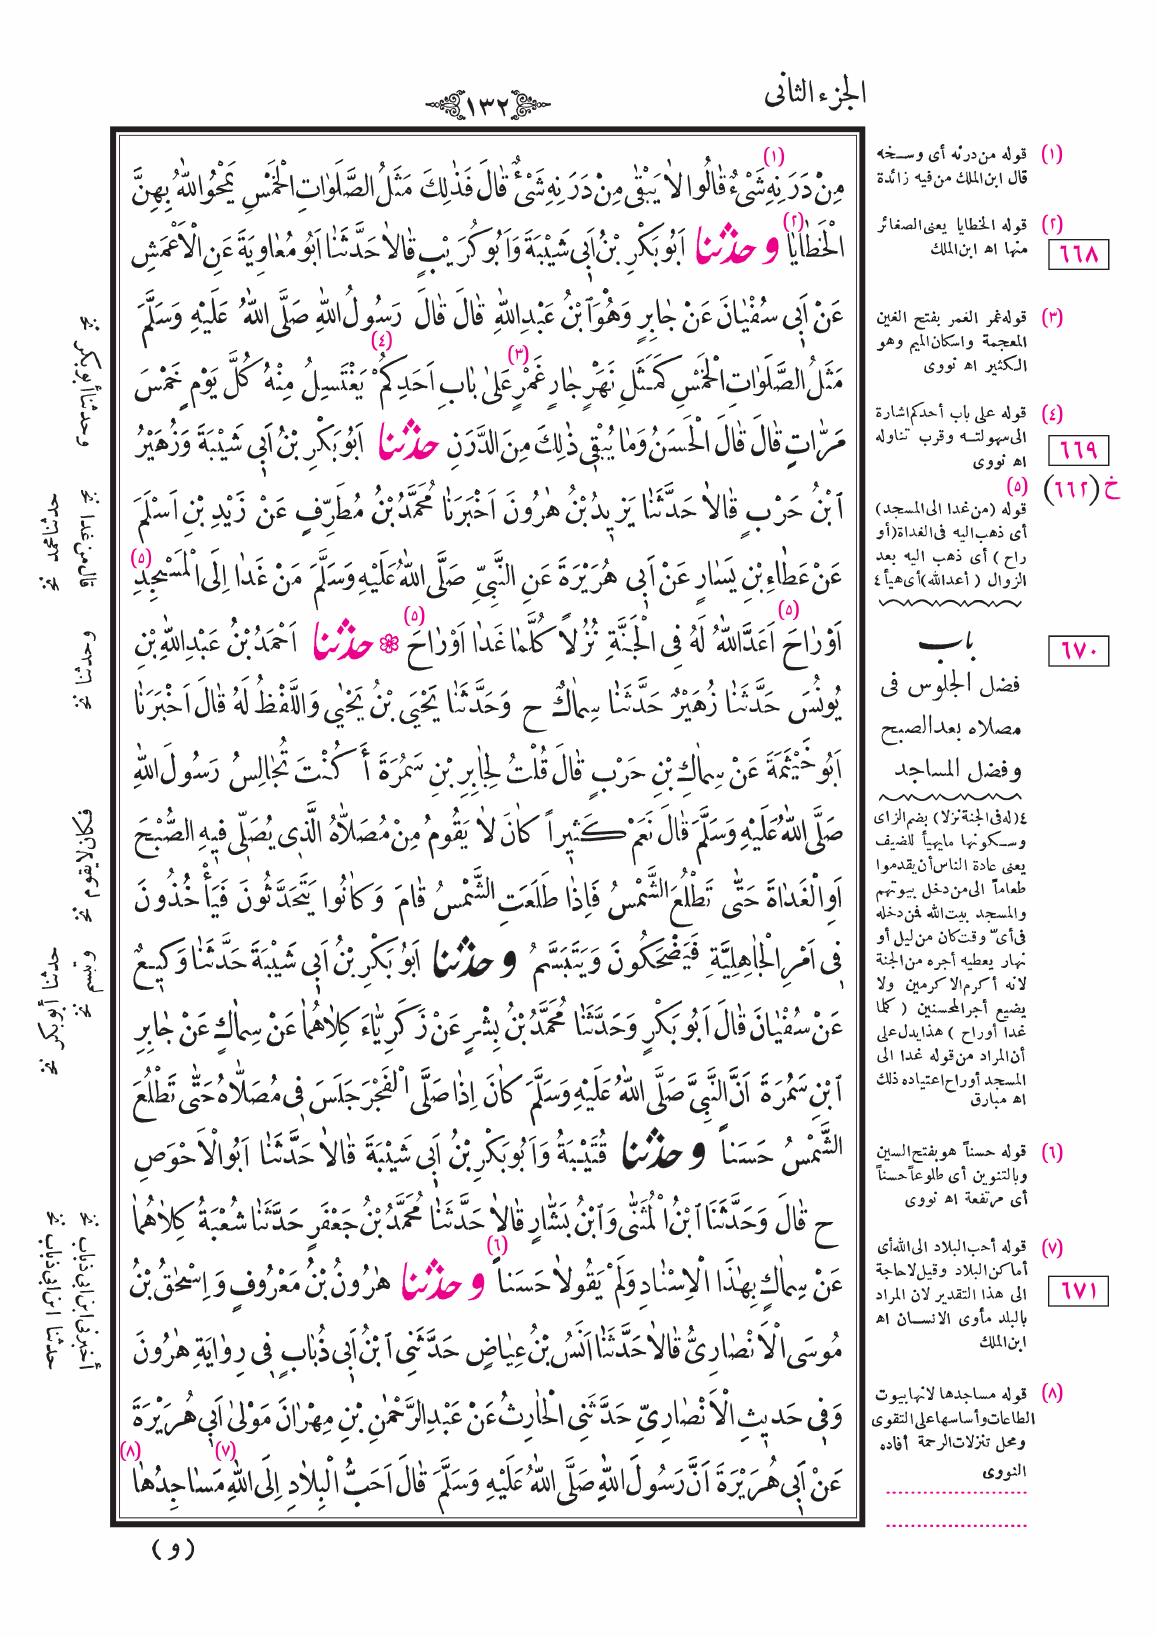 الجزء الثانى
١٣٢
مِنْ دَرَنِهِ شَىْءٌ قَالُوا لَا يَبْقَى مِنْ دَرَنِهِ شَىْءٌ قَالَ فَذٰلِكَ مَثَلُ الصَّلَوَاتِ الْخَمْسِ يَمْحُو اللّٰهُ بِهِنَّ (١)
الْخَطَايَا (٢) وحدثنا اَبُو بَكْرِ بْنُ اَبِى شَيْبَةَ وَاَبُو كُرَيْبٍ قَالَا حَدَّثَنَا اَبُو مُعَاوِيَةَ عَنِ الْاَعْمَشِ
عَنْ اَبِى سُفْيَانَ عَنْ جَابِرٍ وَهُوَ ابْنُ عَبْدِ اللّٰهِ قَالَ قَالَ رَسُولُ اللّٰهِ صَلَّى اللّٰهُ عَلَيْهِ وَسَلَّمَ
مَثَلُ الصَّلَوَاتِ الْخَمْسِ كَمَثَلِ نَهْرٍ جَارٍ غَمْرٍ (٣) عَلٰى بَابِ اَحَدِكُمْ (٤) يَغْتَسِلُ مِنْهُ كُلَّ يَوْمٍ خَمْسَ
مَرَّاتٍ قَالَ قَالَ الْحَسَنُ وَمَا يُبْقِى ذٰلِكَ مِنَ الدَّرَنِ حدثنا اَبُو بَكْرِ بْنُ اَبِى شَيْبَةَ وَزُهَيْرُ
ابْنُ حَرْبٍ قَالَا حَدَّثَنَا يَزِيدُ بْنُ هٰرُونَ اَخْبَرَنَا مُحَمَّدُ بْنُ مُطَرِّفٍ عَنْ زَيْدِ بْنِ اَسْلَمَ
عَنْ عَطَاءِ بْنِ يَسَارٍ عَنْ اَبِى هُرَيْرَةَ عَنِ النَّبِىِّ صَلَّى اللّٰهُ عَلَيْهِ وَسَلَّمَ مَنْ غَدَا اِلَى الْمَسْجِدِ (٥)
اَوْ رَاحَ (٥) اَعَدَّ اللّٰهُ لَهُ فِى الْجَنَّةِ نُزُلًا كُلَّمَا غَدَا اَوْ رَاحَ (٥) ❁ حدثنا اَحْمَدُ بْنُ عَبْدِ اللّٰهِ بْنِ
يُونُسَ حَدَّثَنَا زُهَيْرٌ حَدَّثَنَا سِمَاكٌ ح وَحَدَّثَنَا يَحْيَى بْنُ يَحْيٰى وَاللَّفْظُ لَهُ قَالَ اَخْبَرَنَا
اَبُو خَيْثَمَةَ عَنْ سِمَاكِ بْنِ حَرْبٍ قَالَ قُلْتُ لِجَابِرِ بْنِ سَمُرَةَ أَكُنْتَ تُجَالِسُ رَسُولَ اللّٰهِ
صَلَّى اللّٰهُ عَلَيْهِ وَسَلَّمَ قَالَ نَعَمْ كَثِيراً كَانَ لَا يَقُومُ مِنْ مُصَلَّاهُ الَّذِى يُصَلِّى فِيهِ الصُّبْحَ
اَوِ الْغَدَاةَ حَتَّى تَطْلُعَ الشَّمْسُ فَاِذَا طَلَعَتِ الشَّمْسُ قَامَ وَكَانُوا يَتَحَدَّثُونَ فَيَأْخُذُونَ
فِى اَمْرِ الْجَاهِلِيَّةِ فَيَضْحَكُونَ وَيَتَبَسَّمُ وحدثنا اَبُو بَكْرِ بْنُ اَبِى شَيْبَةَ حَدَّثَنَا وَكِيعٌ
عَنْ سُفْيَانَ قَالَ اَبُو بَكْرٍ وَحَدَّثَنَا مُحَمَّدُ بْنُ بِشْرٍ عَنْ زَكَرِيَّاءَ كِلَاهُمَا عَنْ سِمَاكٍ عَنْ جَابِرِ
ابْنِ سَمُرَةَ اَنَّ النَّبِىَّ صَلَّى اللّٰهُ عَلَيْهِ وَسَلَّمَ كَانَ اِذَا صَلَّى الْفَجْرَ جَلَسَ فِى مُصَلَّاهُ حَتَّى تَطْلُعَ
الشَّمْسُ حَسَناً وحدثنا قُتَيْبَةُ وَاَبُو بَكْرِ بْنُ اَبِى شَيْبَةَ قَالَا حَدَّثَنَا اَبُو الْاَحْوَصِ
ح قَالَ وَحَدَّثَنَا ابْنُ الْمُثَنَّى وَابْنُ بَشَّارٍ قَالَا حَدَّثَنَا مُحَمَّدُ بْنُ جَعْفَرٍ حَدَّثَنَا شُعْبَةُ كِلَاهُمَا
عَنْ سِمَاكٍ بِهٰذَا الْاِسْنَادِ وَلَمْ يَقُولَا حَسَناً (٦) وحدثنا هٰرُونُ بْنُ مَعْرُوفٍ وَاِسْحٰقُ بْنُ
مُوسَى الْاَنْصَارِىُّ قَالَا حَدَّثَنَا اَنَسُ بْنُ عِيَاضٍ حَدَّثَنِى ابْنُ اَبِى ذُبَابٍ فِى رِوَايَةِ هٰرُونَ
وَفِى حَدِيثِ الْاَنْصَارِىِّ حَدَّثَنِى الْحَارِثُ عَنْ عَبْدِ الرَّحْمٰنِ بْنِ مِهْرَانَ مَوْلٰى اَبِى هُرَيْرَةَ
عَنْ اَبِى هُرَيْرَةَ اَنَّ رَسُولَ اللّٰهِ صَلَّى اللّٰهُ عَلَيْهِ وَسَلَّمَ قَالَ اَحَبُّ الْبِلَادِ اِلَى اللّٰهِ (٧) مَسَاجِدُهَا (٨)
( و )
(١) قوله من درنه أى وسخه
قال ابن الملك من فيه زائدة
(٢) قوله الخطايا يعنى الصغائر
منها اه ابن الملك
٦٦٨
(٣) قوله غمر الغمر بفتح الغين
المعجمة واسكان الميم وهو
الكثير اه نووى
(٤) قوله على باب أحدكم اشارة
الى سهولته وقرب تناوله
اه نووى
٦٦٩
خ (٦٦٢)
(٥)
قوله (من غدا الى المسجد)
أى ذهب اليه فى الغداة (أو
راح) أى ذهب اليه بعد
الزوال (أعدالله) أى هيأ ٤
٦٧٠
باب
فضل الجلوس فى
مصلاه بعد الصبح
وفضل المساجد
٤ (له فى الجنة نزلا) بضم الزاى
وسكونها مايهيأ للضيف
يعنى عادة الناس أن يقدموا
طعاماً الى من دخل بيوتهم
والمسجد بيت الله فمن دخله
فى أىّ وقت كان من ليل أو
نهار يعطيه أجره من الجنة
لانه أكرم الاكرمين ولا
يضيع أجر المحسنين (كلما
غدا أوراح) هذا يدل على
أن المراد من قوله غدا الى
المسجد أوراح اعتياده ذلك
اه مبارق
(٦) قوله حسناً هو بفتح السين
وبالتنوين أى طلوعاً حسناً
أى مرتفعة اه نووى
(٧) قوله أحب البلاد الى الله أى
أماكن البلاد وقيل لاحاجة
الى هذا التقدير لان المراد
بالبلد مأوى الانسان اه
ابن الملك
٦٧١
(٨) قوله مساجدها لانها بيوت
الطاعات وأساسها على التقوى
ومحل تنزلات الرحمة أفاده
النووى
وحدثنا أبوبكر نخ
قال من غدا نخ
حدثنا محمد نخ
وحدثنا نخ
فكان لا يقوم نخ
وتبسم نخ
حدثنا أبوبكر نخ
أخبرنى ابن ابى ذباب نخ
حدثنا ابن ابى ذباب نخ